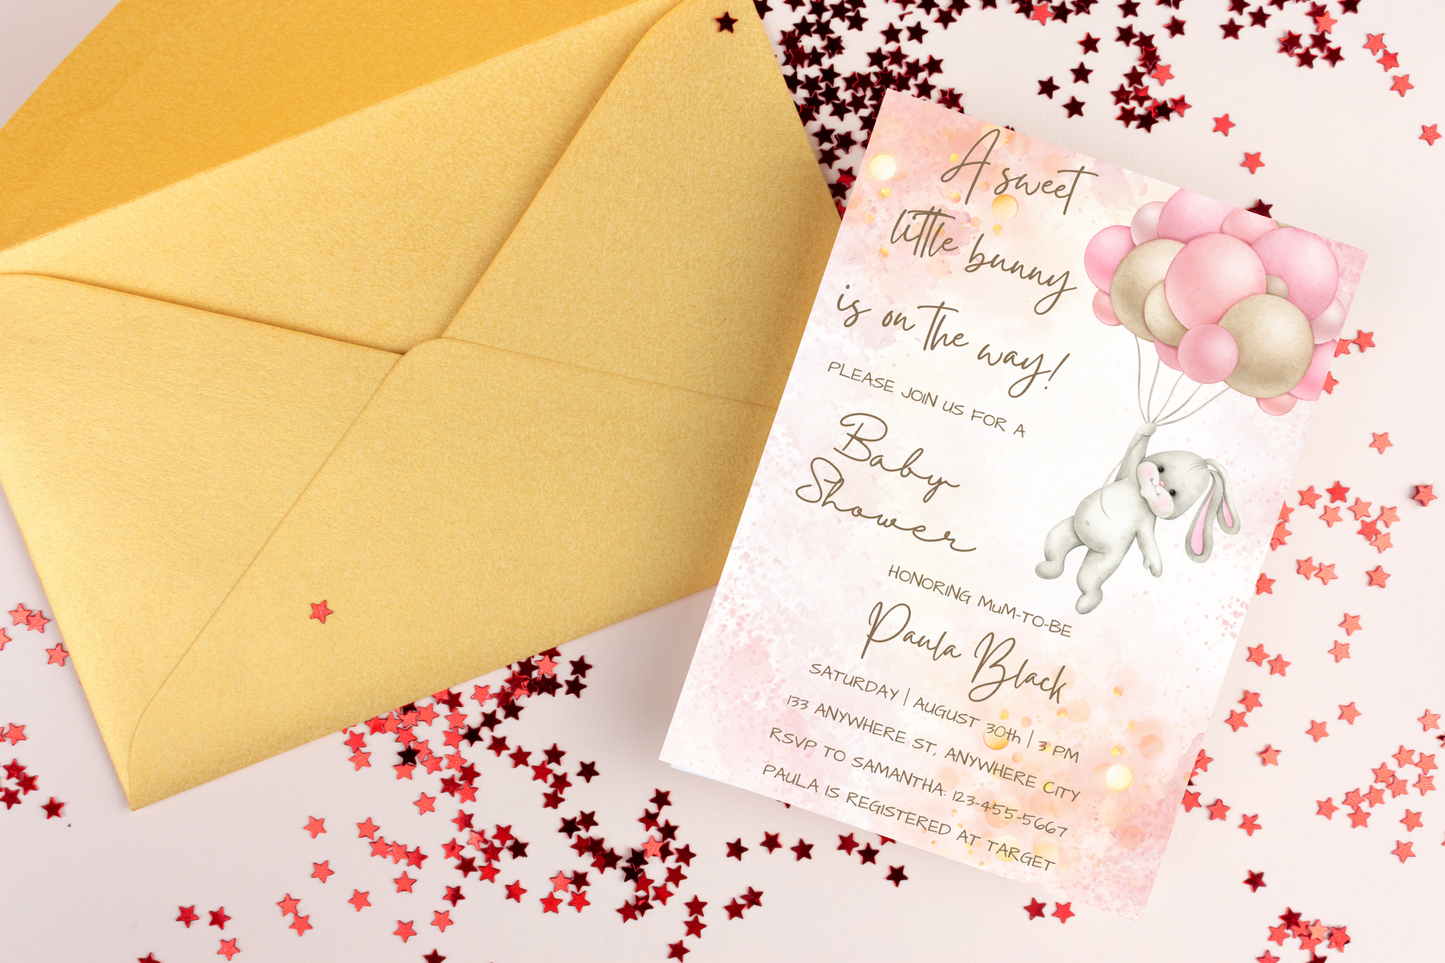 A sweet
little bunny
is on the way!
PLEASE JOIN US FOR A
Baby
Shower
HONORING MUM-TO-BE
Paula Black
SATURDAY | AUGUST 30th | 3 PM
133 ANYWHERE ST, ANYWHERE CITY
RSVP TO SAMANTHA: 123-455-5667
PAULA IS REGISTERED AT TARGET